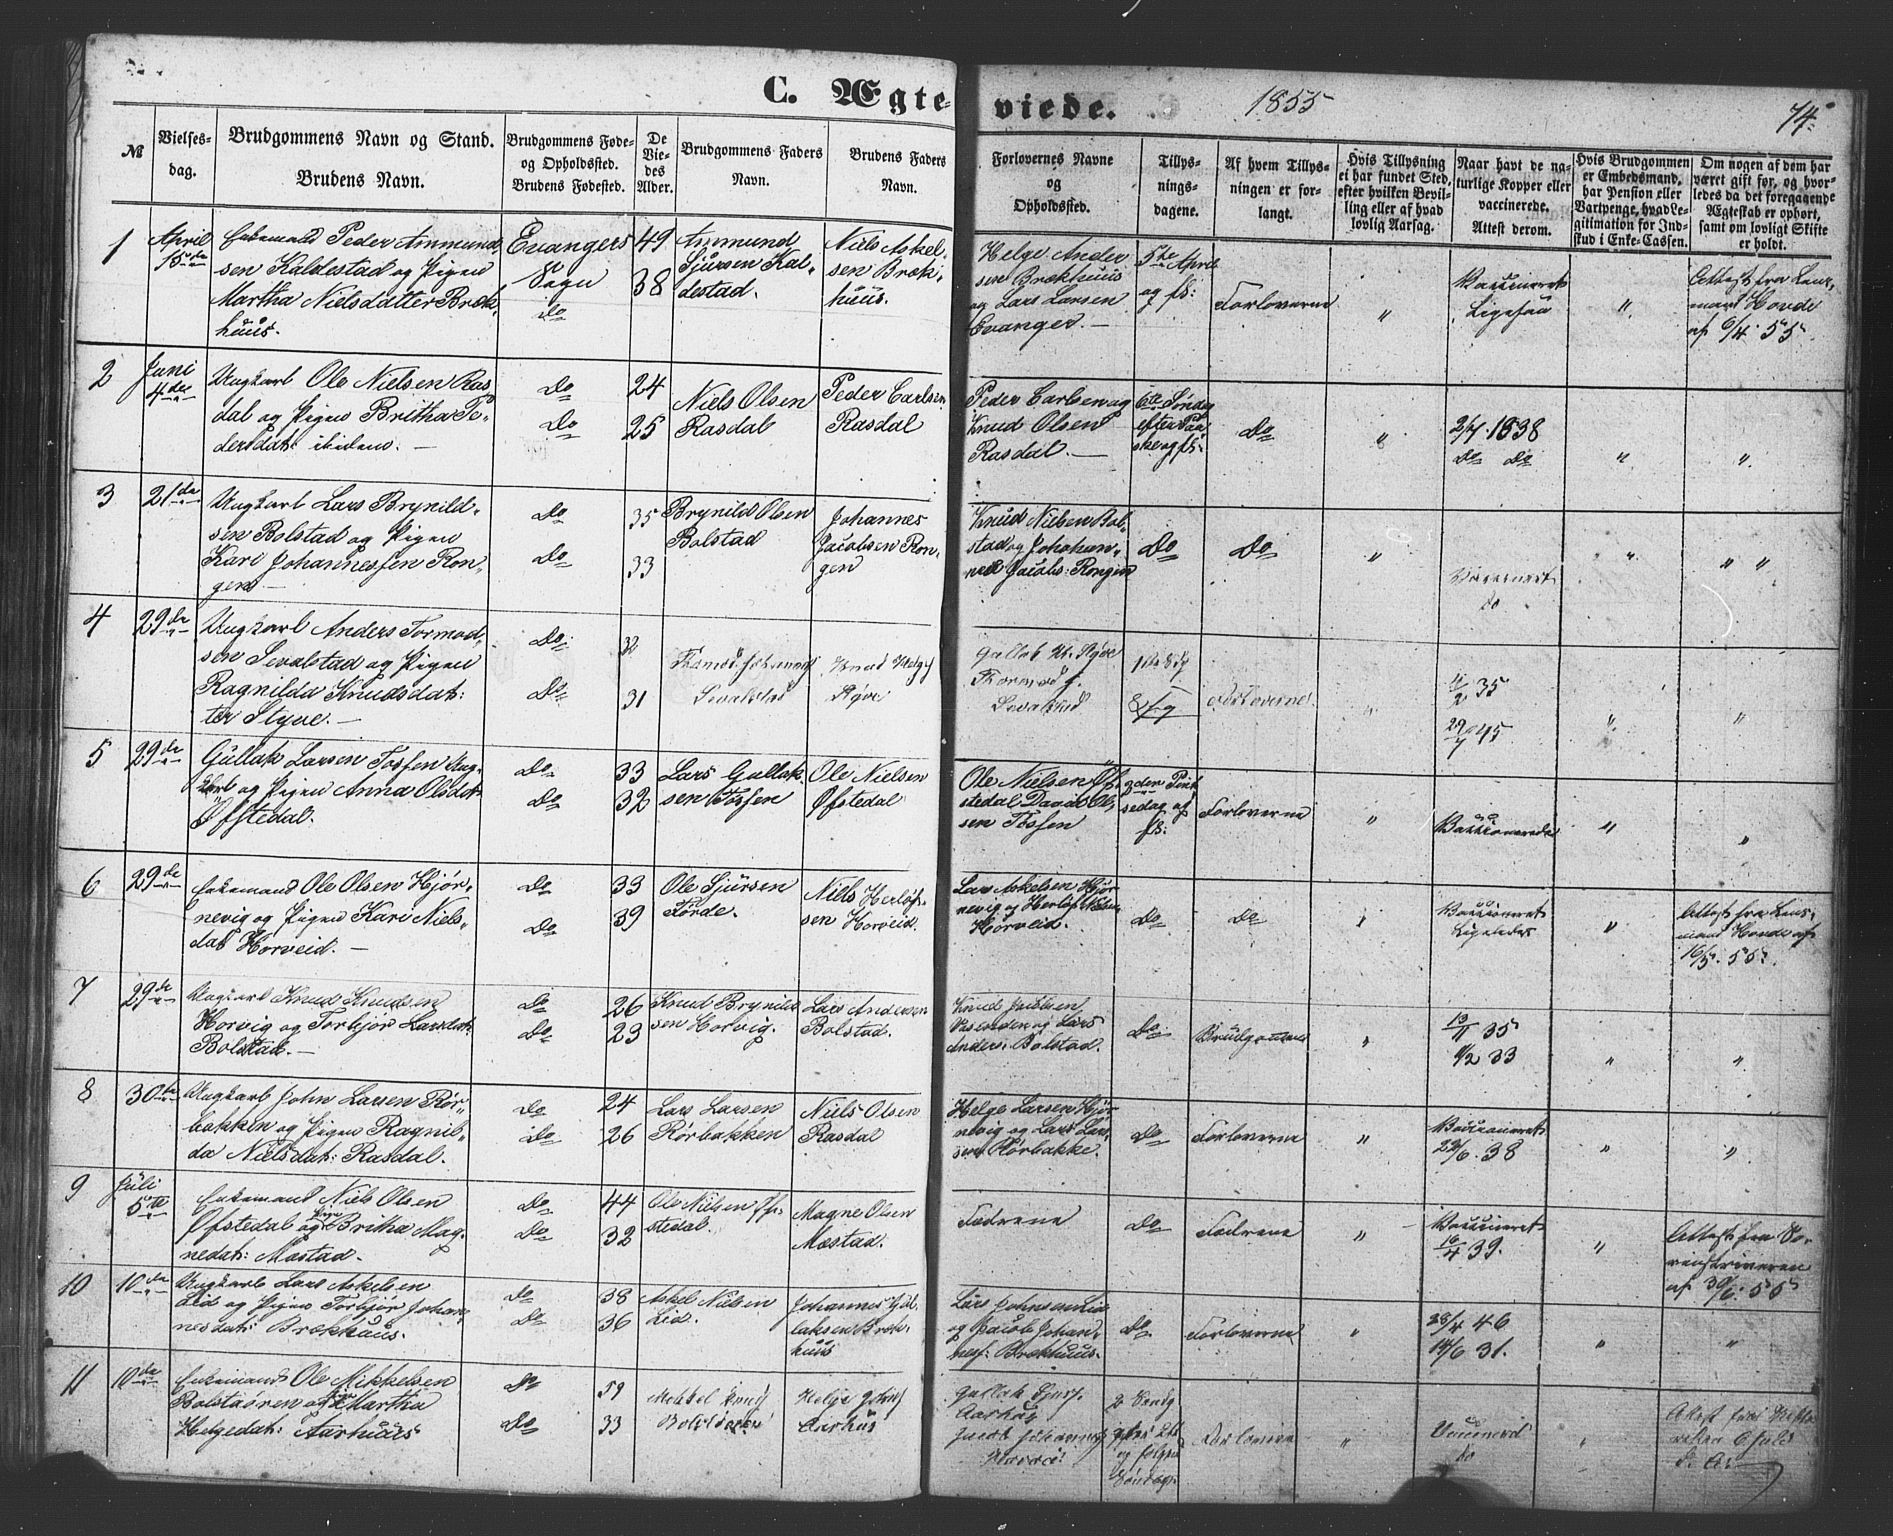 C. Ægteviede. 1855 74.
№
Vielsesdag.
Brudgommens Navn og Stand.
Brudens Navn.
Brudgommens Føde-
og Opholdssted.
Brudens Fødested.
De
Vie-
des
Alder.
Brudgommens Faders
Navn.
Brudens Faders
Navn.
Forlovernes Navne
og
Opholdssted.
Tillys-
nings-
dagene.
Af hvem Tillys-
ningen er for-
langt.
Hvis Tillysning
ei har fundet Sted,
efter hvilken Bevil-
ling eller af hvad
lovlig Aarsag.
Naar havt de na-
turlige Kopper eller
vaccinerede.
Attest derom.
Hvis Brudgommen
er Embedsmand,
har Pension eller
Vartpenge, hvad Le-
gitimation for Ind-
skud i Enke-Cassen.
Om nogen af dem har
været gift før, og hvor-
ledes da det foregaaende
Ægteskab er ophørt,
samt om lovligt Skifte
er holdt.
1 April 15de Enkemand Peder Ammund-
sen Kaldestad og Pigen
Martha Nielsdatter Bræk-
huus.
Evangers Sogn
do
49
38
Ammund
Sjursen Kal-
destad.
Niels Askel-
sen Bræk-
huus.
Helge Ander
sen Brækhuus
og Lars Larsen
Evanger.
5te April
og fl:
Forloverne
"
Vaccineret
Ligesaa
"
Attest fra Lens-
mand Hovde
af 6/4 55
2 Juni 4de Ungkarl Ole Nielsen Ras
dal og Pigen Britha Pe-
dersdat: ibidem.
Do
Do
24
25
Niels Olsen
Rasdal
Peder Carlsen
Rasdal
Peder Carlsen og
Knud Olsen
Rasdal.
6te Søndag
efter Paa
ske og fl:
Do
"
2/7 1838
Do Do
"
"
3 21de Ungkarl Lars Brynild-
sen Bolstad og Pigen
Kari Johannessen Ron-
gen
Do
Do
35
33
Brynild Olsen
Bolstad
Johannes
Jacobsen Ron-
gen
Knud Nielsen Bol-
stad og Johan-
nes Jacobs: Rongen
Do
Do
"
Vaccineret
do
"
" "
4 29de Ungkarl Anders Tormod-
sen Sevalstad og Pigen
Ragnilda Knudsdat:
ter Styve.
Do
Do
32
31
Sevalstad
Knud Helges
Styve
Forloverne
"
35
45
"
"
5 29de Gullak Larsen Tossen Ung-
karl og Pigen Anna Olsdat:
Øfstedal.
Do
Do
33
32
Lars Gullak-
sen Tossen
Ole Nielsen
Øfstedal
Ole Nielsen Øf-
stedal David Ol-
sen Tossen
2den Pint
sedag og
fl:
Forloverne
"
Vaccinerede
"
"
6 29de Enkemand Ole Olsen Hjør-
nevig og Pigen Kari Niels-
dat Horveid.
Do
Do
33
39
Ole Sjursen
Førde.
Niels Herlof-
sen Horveid.
Lars Askelsen Hjør
nevig og Herlof Nielsen
Horveid.
Do
Do
"
Vaccineret
Ligeledes
"
Attest fra Lens-
mand Hovde af
16/5 55.
7 29de Ungkarl Knud Knudsen
Horvig og Torbjør Larsdat:
Bolstad.
Do
Do
26
23
Knud Brynild
sen Horvig.
Lars Andersen
Bolstad.
Lars
Anders: Bolstad.
Do
Brudgommen
"
13/11 35
33
"
"
8 30te Ungkarl John Larsen Rør-
bakken og Pigen Ragnil-
da Nielsdat: Rasdal.
Do
Do
24
26
Lars Larsen
Rørbakken
Niels Olsen
Rasdal
Helge Larsen Hjør
nevig og Lars Lar-
sen Rørbakke.
Do
Forloverne
"
Vaccineret
22/6 38
"
"
9 Juli 5te Enkemand Niels Olsen
Øfstedal og Pigen Britha Mag-
nedat: Mæstad.
Do
Do
44
32
Ole Nielsen Øf-
stedal.
Magne Olsen
Mæstad.
Fædrene
Do
Fædrene
"
Vaccineret
16/4 39.
"
Attest fra So-
renskriveren
af 30/6 55
10 10de Ungkarl Lars Askelsen
Lid og Pigen Torbjør Johan-
nesdat: Brækhuus.
Do
Do
38
36
Askel Nielsen
Lid.
Johannes Gul-
laksen Bræk-
huus
Lars Johnsen Lid
og Jacob Johan-
nes: Brækhuus.
Do.
Forloverne
"
28/4 46
14/6 31.
"
"
11 10de Enkemand Ole Mikkelsen
Bolstaøren og Pigen Martha
Helgedat: Aarhuus
Do
Do
59
33
Mikkel
Bolstøren
Helge
Aarhus
Gullak Sjurs.
Aarhus
Jacob Johannes
og følgende
Søndage.
Forloverne
"
Vaccineret
do
"